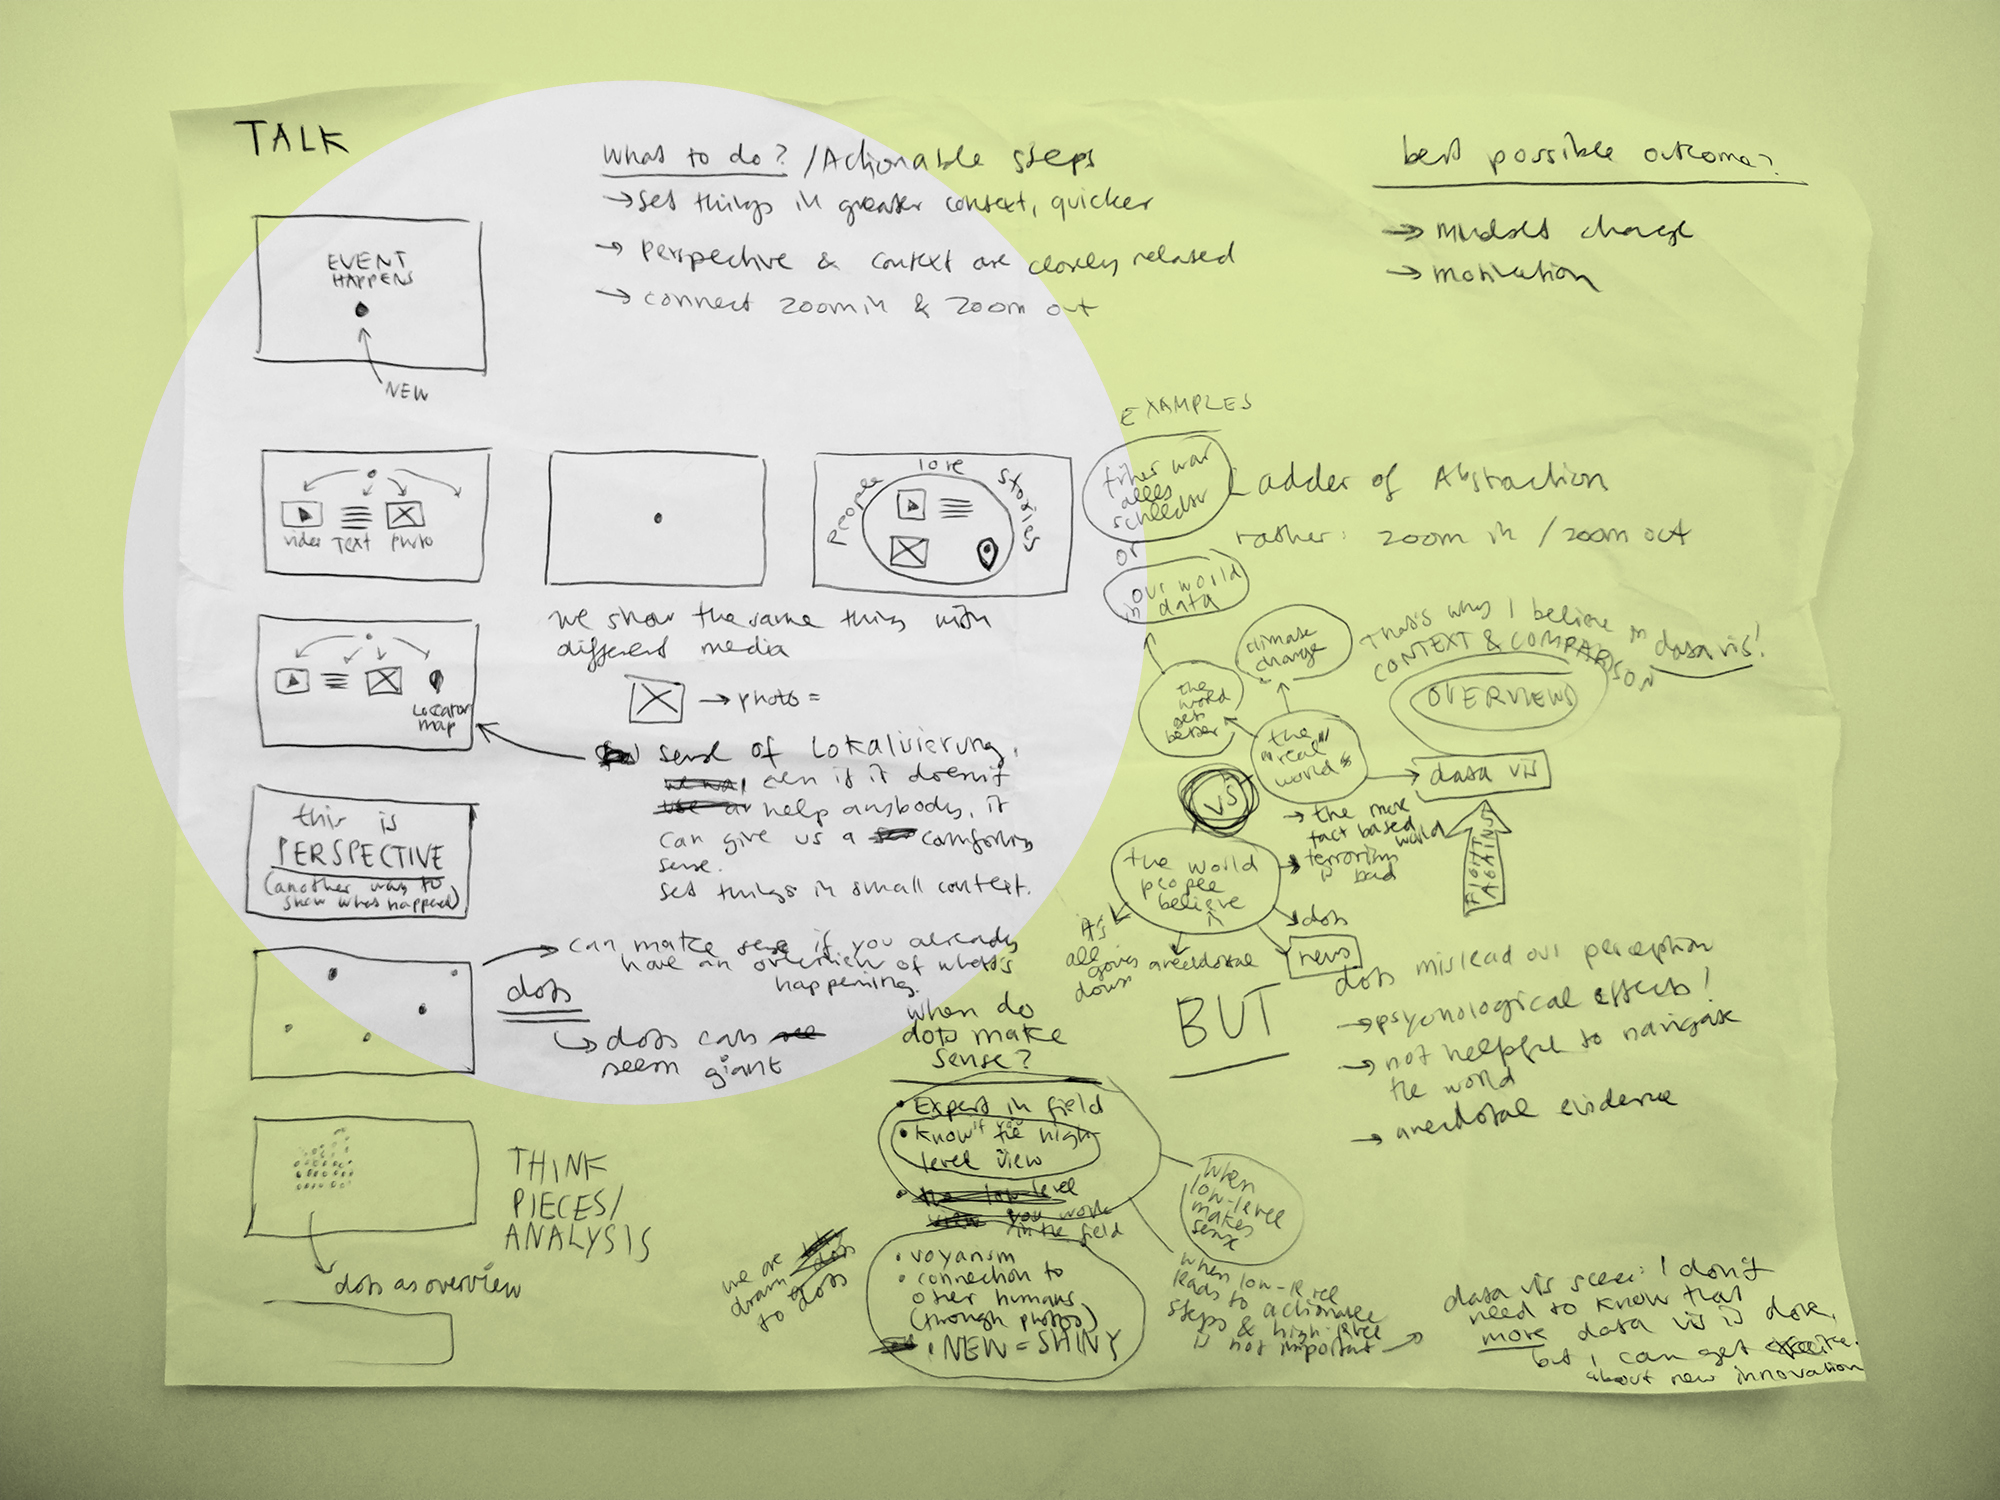 TALK
What to do? / Actionable steps
→ set things in greater context, quicker
→ Perspective & context are closely related
→ connect zoom in & zoom out
best possible outcome?
→ mindset change
→ motivation
EVENT
HAPPENS
NEW
video TEXT photo
people love stories
we show the same thing with
different media
→ photo =
Locator
map
sense of Lokalisierung,
even if it doesn't
help anybody, it
can give us a comforting
sense.
set things in small context.
this is
PERSPECTIVE
(another way to
show what happened)
→ can make sense if you already
have an overview of what's
happening.
dots
→ dots can
seem giant
THINK
PIECES/
ANALYSIS
dots as overview
EXAMPLES
früher war
alles
schlechter
or
our world
in data
Ladder of Abstraction
rather: zoom in / zoom out
climate
change
the
world
gets
better
the
"real"
world
That's why I believe in data vis!
CONTEXT & COMPARISON
OVERVIEW
→ data vis
FIGHT
AGAINST
VS
→ the more
fact based
world
→ terrorism
is bad
the world
people
believe
in
it's
all
going
down
anecdotal
dots
news
BUT
dots mislead our perception
→ psychological effects!
→ not helpful to navigate
the world
→ anecdotal evidence
When do
dots make
sense?
• Expert in field
• Know the high
level view
you work
in the field
when
low-level
makes
sense
we are
drawn
to dots
• voyarism
• connection to
other humans
(through photos)
• NEW = SHINY
when low-level
leads to actionable
steps & high-level
is not important →
data vis scene: I don't
need to know that
more data vis is done,
but I can get
about new innovation